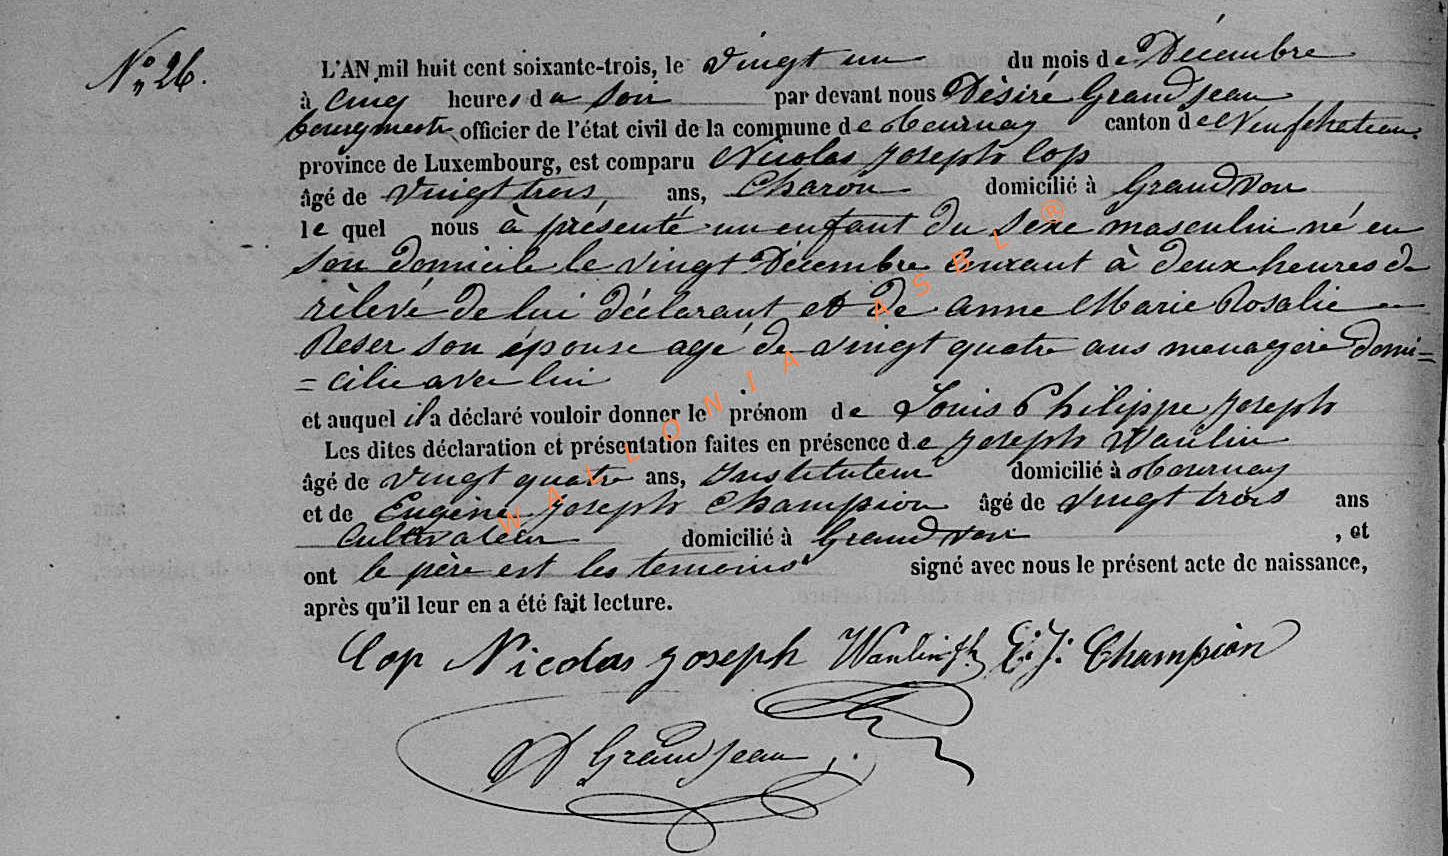 N° 26.
L'AN mil huit cent soixante-trois, le vingt un du mois de Décembre
à cinq heures du soir par devant nous Désiré Grandjean
bourgmestre officier de l'état civil de la commune de Tournay canton de Neufchateau
province de Luxembourg, est comparu Nicolas Joseph Cop
âgé de vingt trois ans, Charon domicilié à Grandvoir
le quel nous à présenté un enfant du sexe masculin né en
son domicile le vingt Décembre courant à deux heures de
rélevé de lui déclarant et de anne Marie Rosalie
Reser son épouse agé de vingt quatre ans menagere domi=
=cilié avec lui
et auquel il a déclaré vouloir donner le prénom de Louis Philippe Joseph
Les dites déclaration et présentation faites en présence de Joseph Wanlin
âgé de vingt quatre ans, Instituteur domicilié à Tournay
et de Eugène Joseph Champion âgé de vingt trois ans
Cultivateur domicilié à Grandvoir , et
ont le père est les temoins signé avec nous le présent acte de naissance,
après qu'il leur en a été fait lecture.
Cop Nicolas Joseph Wanlin Jh E: J: Champion
D Grandjean
WALLONIA ASBL ®